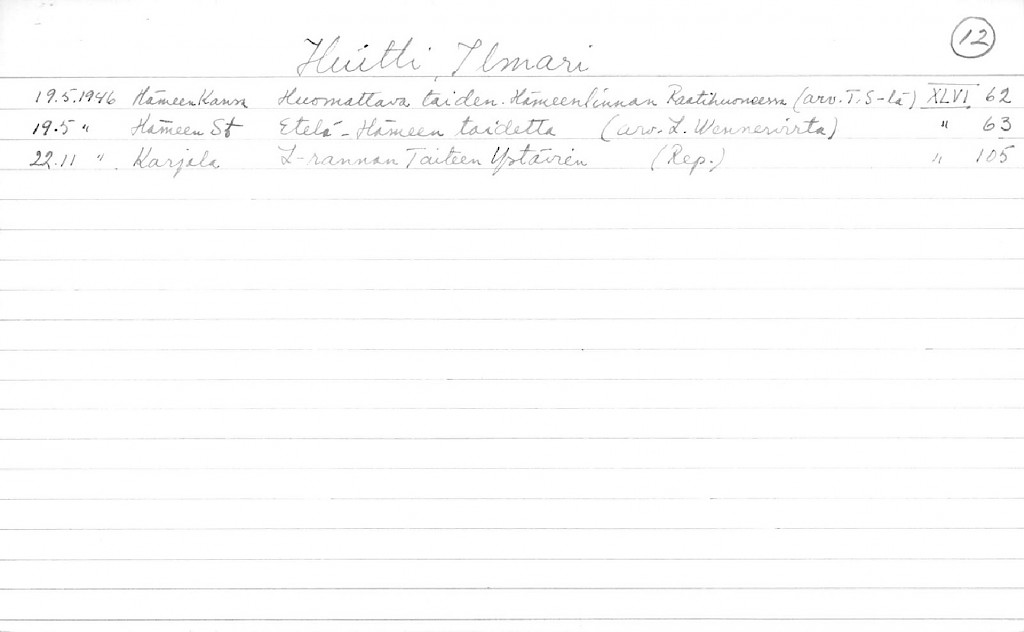 12
Huitti, Ilmari
19.5.1946 Hämeen Kansa Huomattava taiden. Hämeenlinnan Raatihuoneessa (arv. T.S-lä) XLVI 62
19.5 " Hämeen St Etelä-Hämeen taidetta (arv. L. Wennervirta) " 63
22.11 " Karjala L-rannan Taiteen Ystävien (Rep.) " 105